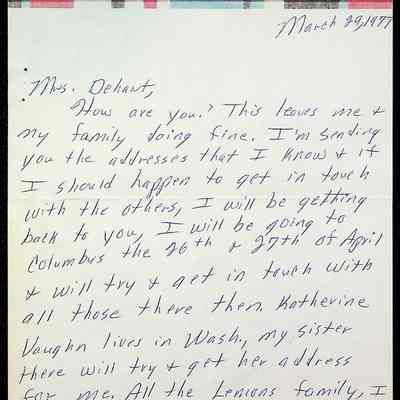 March 29, 1977
Mrs. Dehart,
How are you? This leaves me &
my family doing fine. I'm sending
you the addresses that I know & if
I should happen to get in touch
with the others, I will be getting
back to you, I will be going to
Columbus the 26th & 27th of April
& will try & get in touch with
all those there then. Katherine
Vaughn lives in Wash., my sister
there will try & get her address
for me. All the Lemons family, I